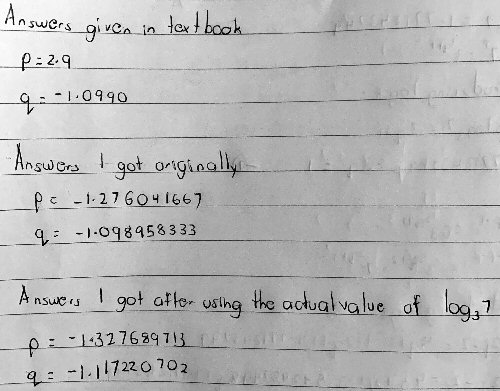 Answers given in textbook
p = 2.9
q = -1.0990
Answers I got originally
p = -1.276041667
q = -1.098958333
Answers I got after using the actual value of log₃7
p = -1.327689713
q = -1.117220702